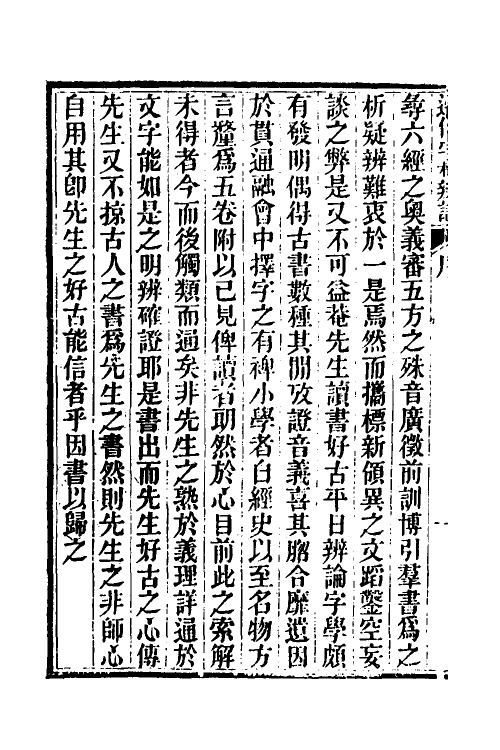 尋六經之奧義審五方之殊音廣徵前訓博引羣書爲之
析疑辨難衷於一是焉然而攜標新領異之文蹈鑿空妄
談之弊是又不可益菴先生讀書好古平日辨論字學頗
有發明偶得古書數種其閒攷證音義喜其脗合靡遺因
於貫通融會中擇字之有裨小學者自經史以至名物方
言釐爲五卷附以己見俾讀者朗然於心目前此之索解
未得者今而後觸類而通矣非先生之熟於義理詳通於
文字能如是之明辨確證耶是書出而先生好古之心傳
先生又不掠古人之書爲先生之書然則先生之非師心
自用其卽先生之好古能信者乎因書以歸之